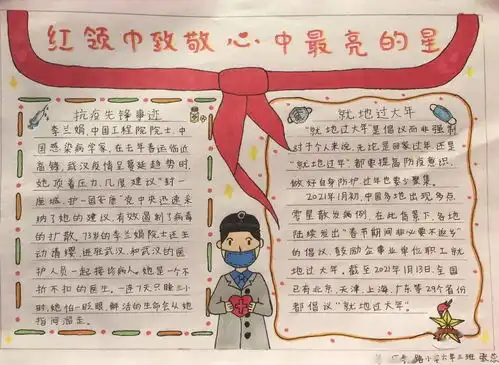 红领巾致敬心中最亮的星
抗疫先锋事迹
李兰娟,中国工程院院士,中
国感染病学家,在去年春运临近
高锋,武汉疫情呈蔓延趋势时,
她顶着压力,几度建议"封一
座城,护一国安康"党中央迅速采
纳了她的建议,有效遏制了病毒
的扩散,73岁的李兰娟院士还主
动请缨,进驻武汉,和武汉的医
护人员一起接诊病人,她是一个不
折不扣的医生,一连7天只睡三小
时,她怕一眨眼,鲜活的生命会从她
指间溜走。
就地过大年
"就地过大年"是倡议而非强制
对于个人来说,无论是回家过年还是
"就地过年"都要提高防疫意识,
做好自身防护,过年也要少聚集。
2021年1月初,中国多地出现多点
零星散发病例,在此背景下,各地
陆续发出"春节期间非必要不返乡"
的倡议,鼓励企事业单位职工就
地过大年。截至2021年1月13日,全国
已有北京,天津,上海,广东等29个省份
都倡议"就地过大年"。
路小学六年三班